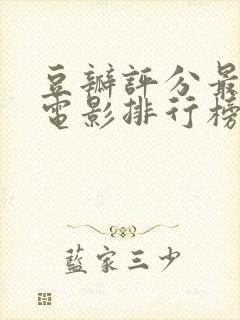 豆瓣評分最
電影排行榜
藍家三少